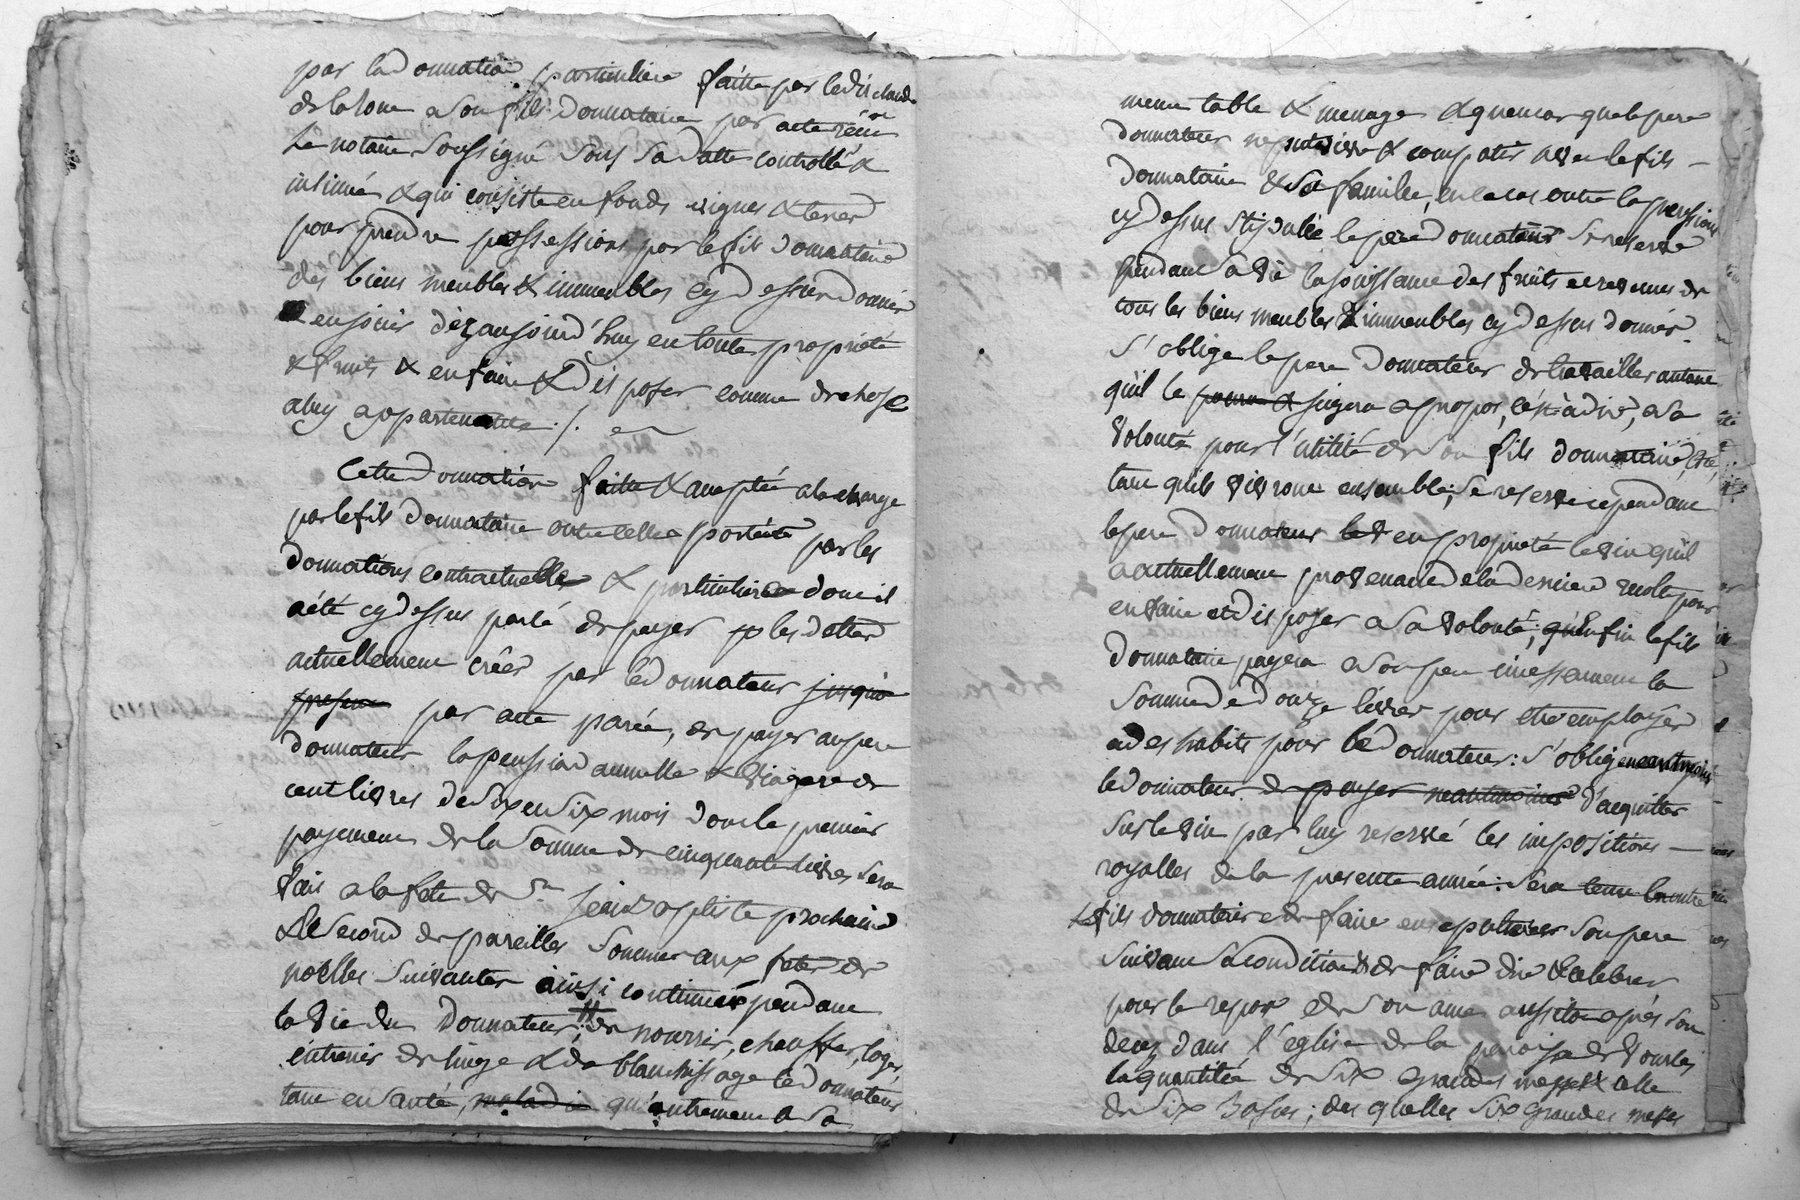 par la donnation particuliere faitte par ledit claude
de la a son fils donnataire par acte recu
le notaire soussigné sous sa datte controllé &
insinué & qui consiste en fonds vignes & terres
pour prendre possessions par le fils donnataire
des biens meubles & immeubles cy dessus donnés
en jouir dèz aujourd'huy en toutte propriété
& fruits & en faire & disposer comme de chose
a luy appartenante ./.
Cette donnation faitte & acceptée a la charge
par le fils donnataire outre celles portées par les
donnations contractuelle & particuliere dont il
a été cy dessus parlé de payer les dettes
actuellement crées par le donnateur jusqu'a
present par acte parée, de payer au pere
donnateur la pension annuelle & viagere de
cent livres de six en six mois dont le premier
payement de la somme de cinquante livres sera
fait a la fete de st jean baptiste prochaine
& le second de pareilles sommes aux fetes de
noelles suivantes ainsi continuer pendant
la vie du donnateur; de nourrir, chauffer, loger
entrenir de linge & de blanchissage le donnateur
tant en santé, maladie qu'autrement a sa
meme table & menage & qu'en cas que le pere
donnateur ne put vivre & compatir avec le fils
donnataire & sa famille, en ce cas outre la pension
cy dessus stipulée le pere donnateur se reserve
pendant sa vie la jouissance des fruits et revenus de
tous les biens meubles & immeubles cy dessus donnés.
S'oblige le pere donnateur de travailler autant
qu'il le pourra & jugera a propos, c'est à dire, a sa
volonté pour l'utilité de son fils donnataire
tant qu'ils vivront ensemble; se reserve cependant
le pere donnateur en propriété le vin qu'il
a actuellement provenant de la derniere recolte pour
en faire et disposer a sa volonté; qu'enfin le fils
donnataire payera a son pere incessament la
somme de douze livres pour etre employée
a des habits pour le donnateur: s'oblige neantmoins
le donnateur de payer neantmoins d'acquitter
sur le vin par luy reservé les impositions
royalles de la presente année: sera tenu en outre
le fils donnataire de faire ensepulturer son pere
suivant sa condition & de faire dire & celebrer
pour le repos de son ame aussitot après son
decez dans l'église de la paroisse de vourles
la quantitée de six grandes messes & celle
de six basses; des quelles six grandes messes